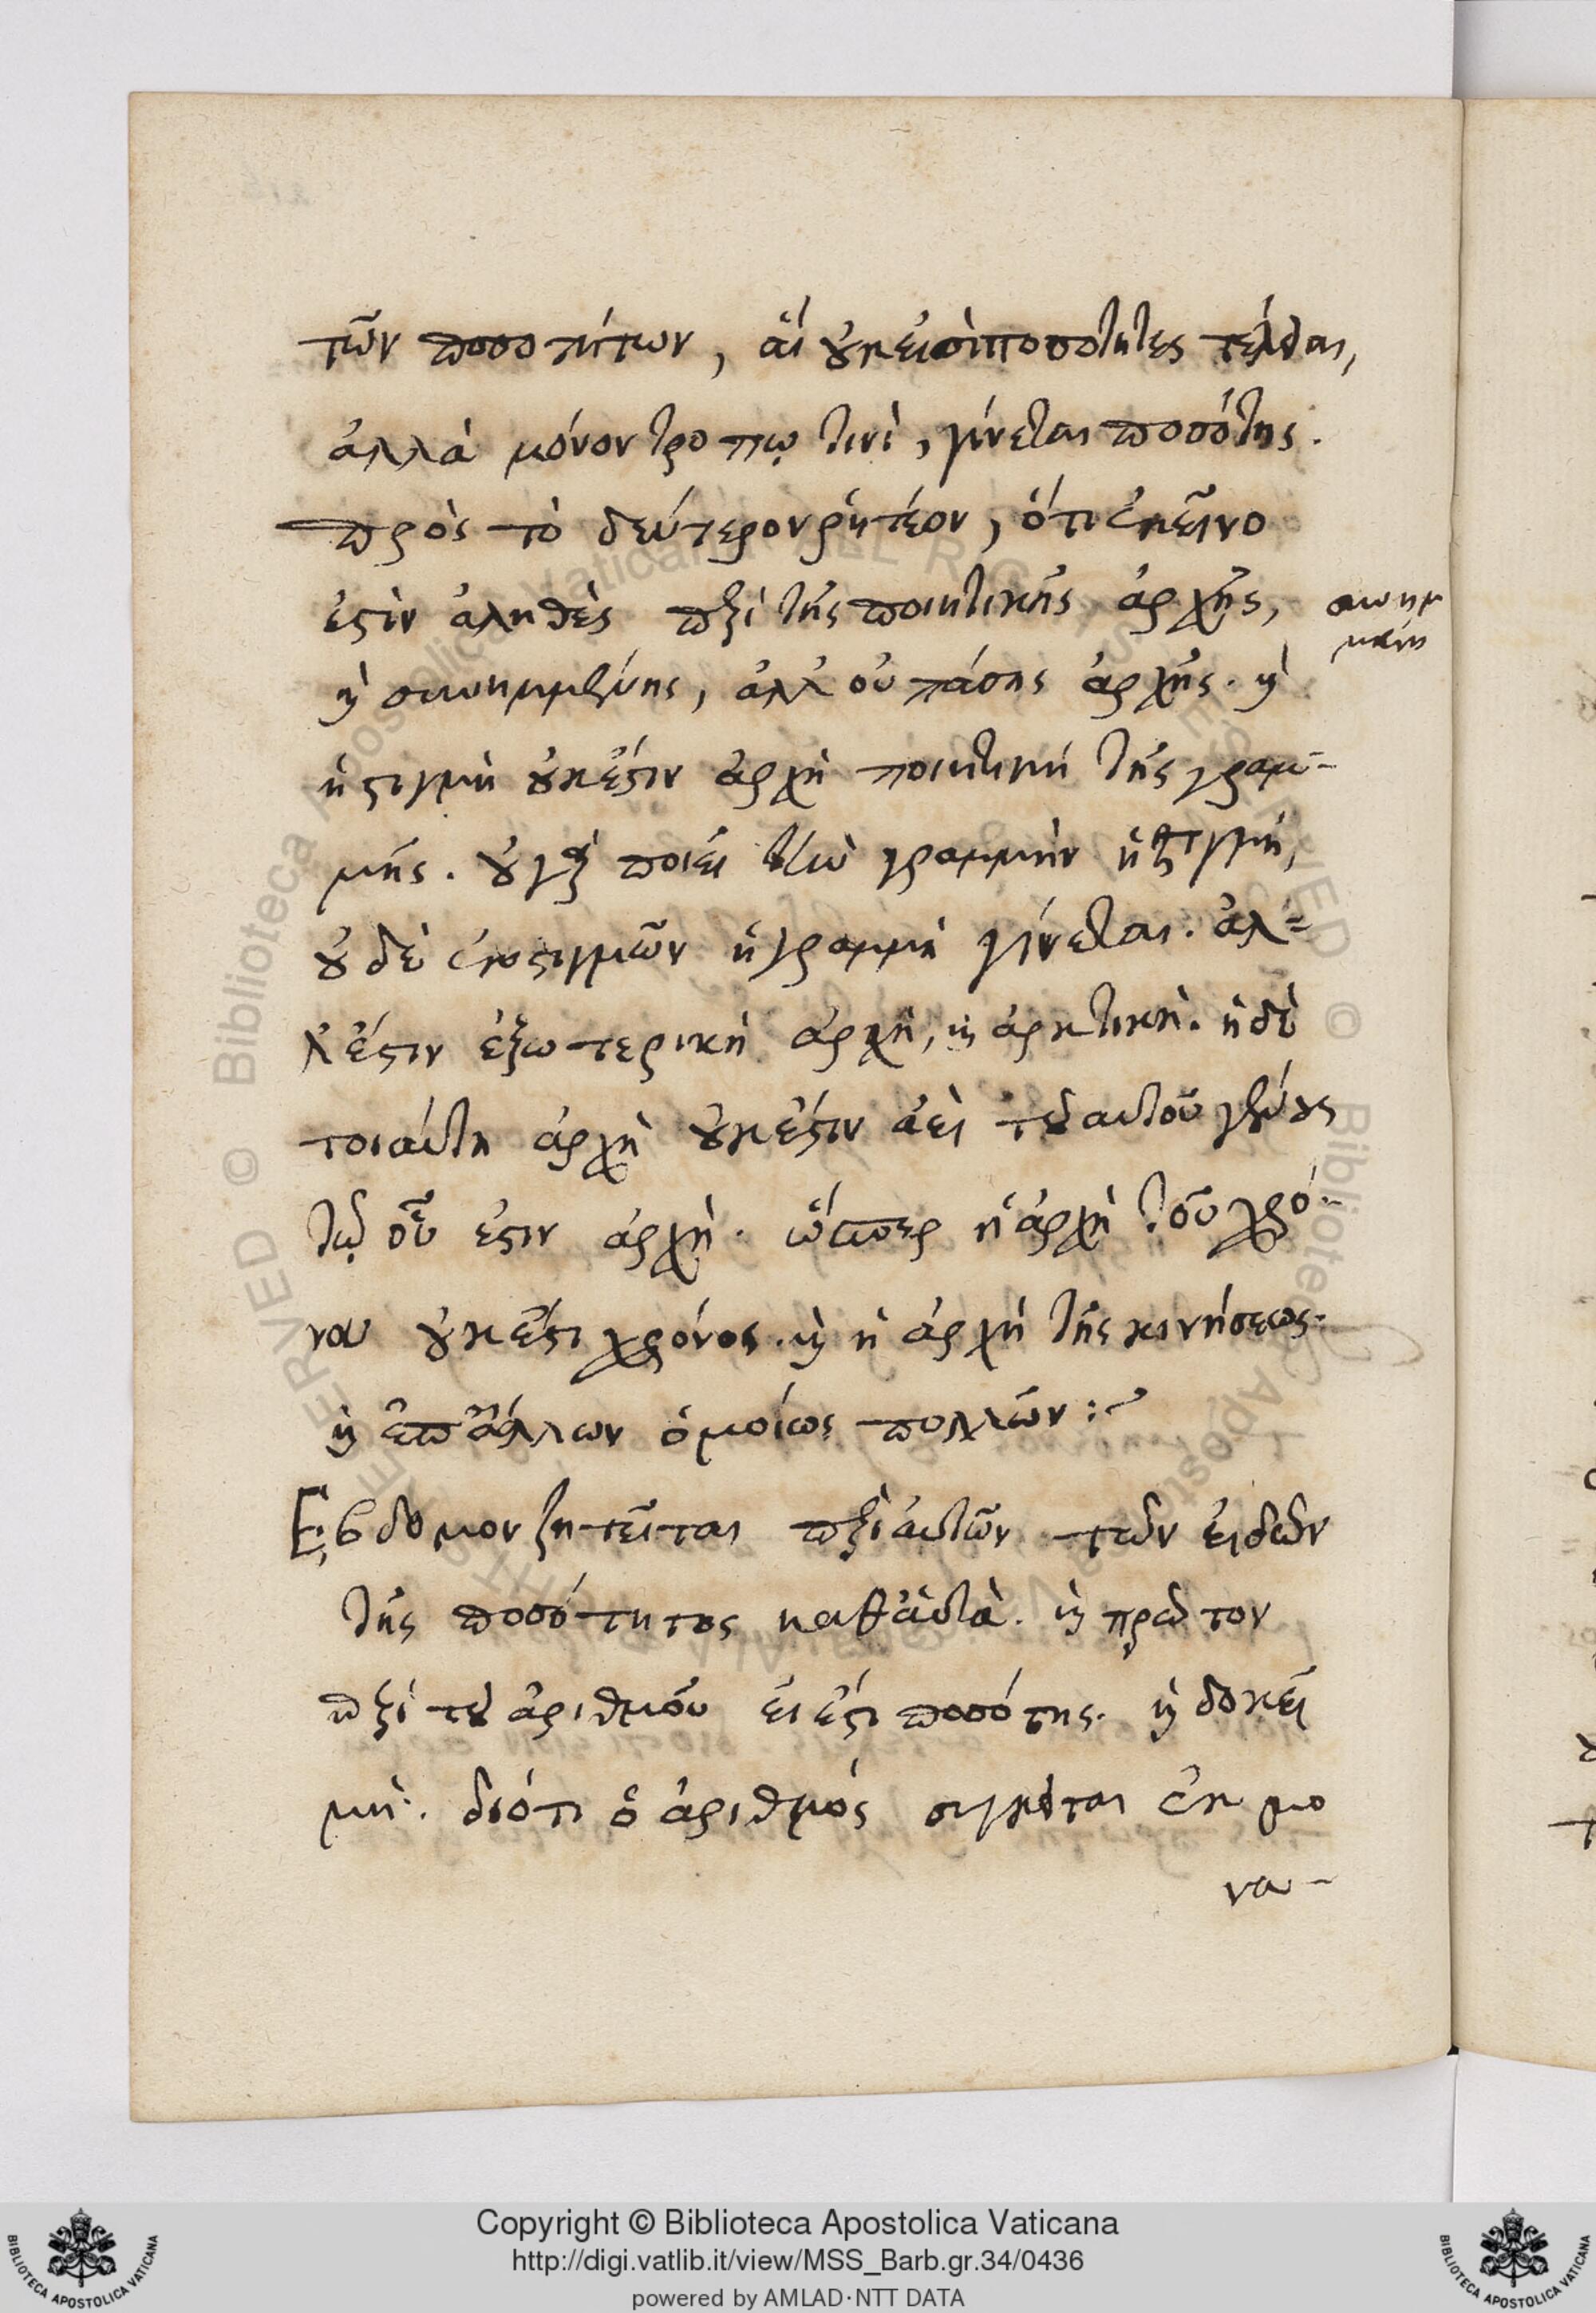 τῶν ποσοτήτων, αἵ οὐκ εἰσὶ ποσότητες τέλειαι,
ἀλλὰ μόνον τρόπῳ τινὶ, γίνεται ποσότης.
πρὸς τὸ δεύτερον ῥητέον, ὅτι ἐκεῖνο
ἐστὶν ἀληθὲς περὶ τῆς ποιητικῆς ἀρχῆς,
καὶ συνημμένης, ἀλλ' οὐ πάσης ἀρχῆς. καὶ
συνημ
μένη
ἡ στιγμὴ οὐκ ἔστιν ἀρχὴ ποιητικὴ τῆς γραμ-
μῆς. οὐ γὰρ ποιεῖ τὴν γραμμὴν ἡ στιγμή,
οὐδὲ ἐκ στιγμῶν ἡ γραμμὴ γίνεται. ἀλ-
λ' ἔστιν ἐξωτερικὴ ἀρχὴ, καὶ ἀρκτικὴ. ἡ δὲ
τοιαύτη ἀρχὴ οὐκ ἔστιν ἀεὶ τοῦ αὐτοῦ γένους
τῷ οὗ ἐστιν ἀρχὴ. ὥσπερ ἡ ἀρχὴ τοῦ χρό-
νου οὐκ ἔστι χρόνος. καὶ ἡ ἀρχὴ τῆς κινήσεως.
καὶ ἐπ' ἄλλων ὁμοίως πολλῶν :~
Ἕβδομον ζητεῖται περὶ αὐτῶν τῶν εἰδῶν
τῆς ποσότητος καθ' αὑτὰ. καὶ πρῶτον
περὶ τοῦ ἀριθμοῦ εἰ ἔστι ποσότης. καὶ δοκεῖ
μὴ. διότι ὁ ἀριθμὸς σύγκειται ἐκ μο
να-
Copyright © Biblioteca Apostolica Vaticana
http://digi.vatlib.it/view/MSS_Barb.gr.34/0436
powered by AMLAD·NTT DATA
BIBLIOTECA APOSTOLICA VATICANA
BIBLIOTECA APOSTOLICA VATICANA